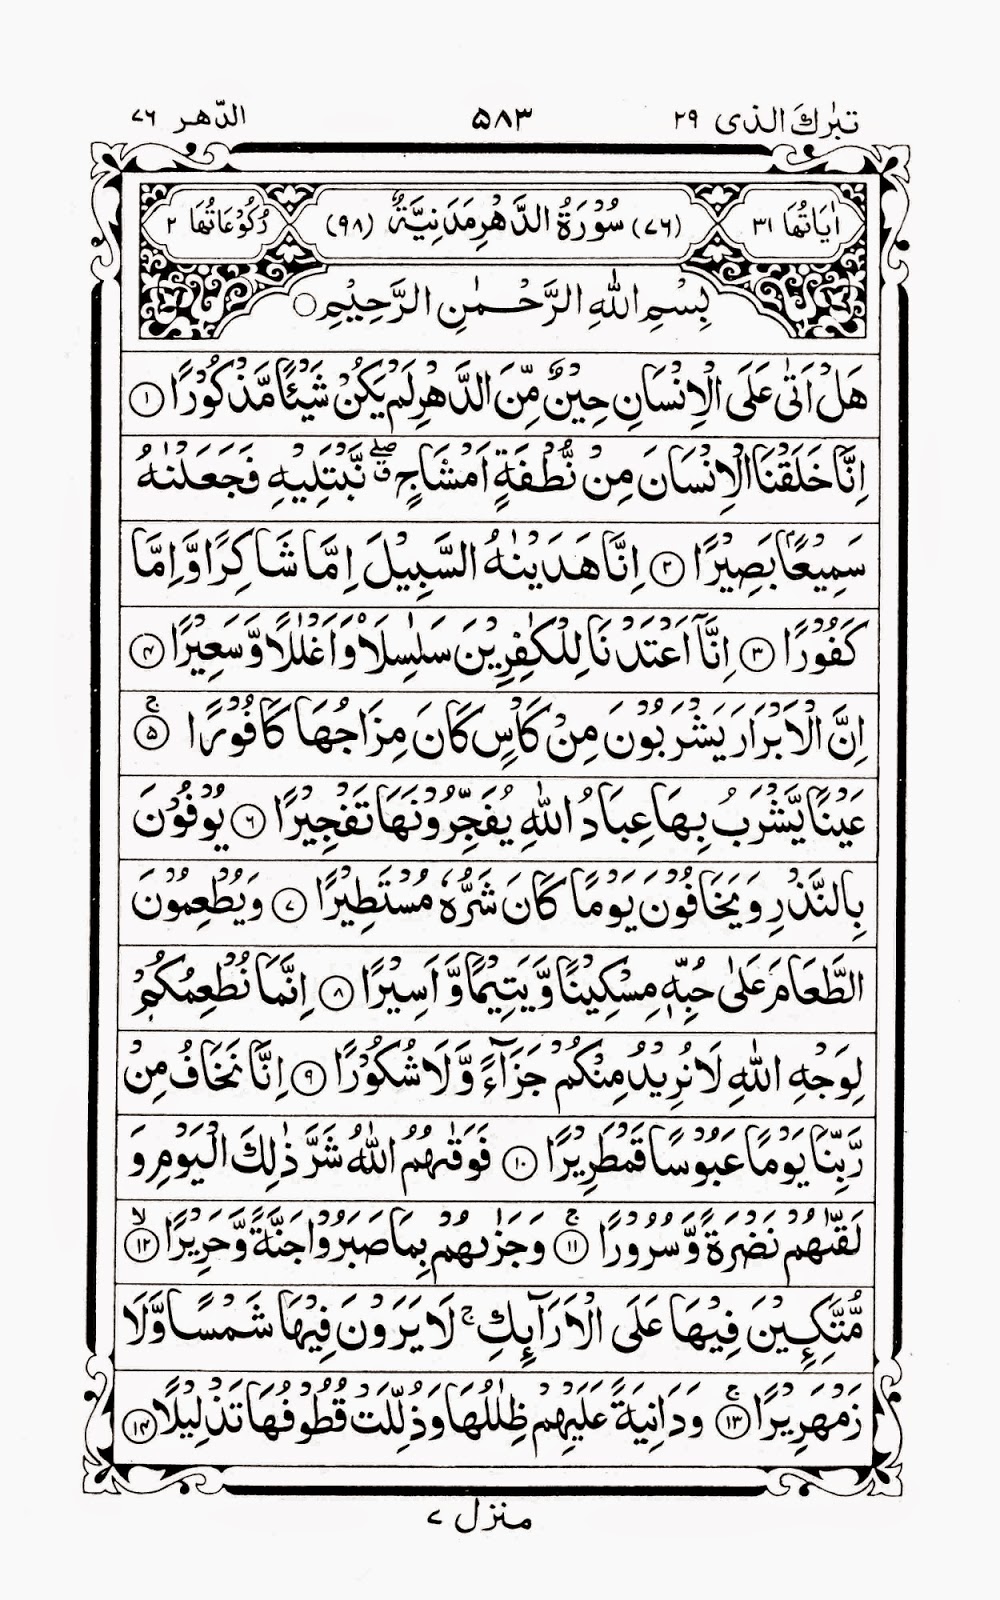 تبٰرك الذی ۲۹ ۵۸۳ الدّهر ۷۶
اٰیَاتُهَا ۳۱ (۷۶) سُوْرَةُ الدَّهْرِ مَدَنِیَّةٌ (۹۸) رُكُوْعَاتُهَا ۲
بِسْمِ اللّٰهِ الرَّحْمٰنِ الرَّحِیْمِ○
هَلْ اَتٰى عَلَى الْاِنْسَانِ حِیْنٌ مِّنَ الدَّهْرِ لَمْ یَكُنْ شَیْـًٔا مَّذْكُوْرًا ۝۱
اِنَّا خَلَقْنَا الْاِنْسَانَ مِنْ نُّطْفَةٍ اَمْشَاجٍ ۖۗ نَّبْتَلِیْهِ فَجَعَلْنٰهُ
سَمِیْعًۢا بَصِیْرًا ۝۲ اِنَّا هَدَیْنٰهُ السَّبِیْلَ اِمَّا شَاكِرًا وَّاِمَّا
كَفُوْرًا ۝۳ اِنَّاۤ اَعْتَدْنَا لِلْكٰفِرِیْنَ سَلٰسِلَاۡ وَاَغْلٰلًا وَّسَعِیْرًا ۝۴
اِنَّ الْاَبْرَارَ یَشْرَبُوْنَ مِنْ كَاْسٍ كَانَ مِزَاجُهَا كَافُوْرًا ۝۵ۚ
عَیْنًا یَّشْرَبُ بِهَا عِبَادُ اللّٰهِ یُفَجِّرُوْنَهَا تَفْجِیْرًا ۝۶ یُوْفُوْنَ
بِالنَّذْرِ وَیَخَافُوْنَ یَوْمًا كَانَ شَرُّهٗ مُسْتَطِیْرًا ۝۷ وَیُطْعِمُوْنَ
الطَّعَامَ عَلٰى حُبِّهٖ مِسْكِیْنًا وَّیَتِیْمًا وَّاَسِیْرًا ۝۸ اِنَّمَا نُطْعِمُكُمْ
لِوَجْهِ اللّٰهِ لَا نُرِیْدُ مِنْكُمْ جَزَآءً وَّلَا شُكُوْرًا ۝۹ اِنَّا نَخَافُ مِنْ
رَّبِّنَا یَوْمًا عَبُوْسًا قَمْطَرِیْرًا ۝۱۰ فَوَقٰىهُمُ اللّٰهُ شَرَّ ذٰلِكَ الْیَوْمِ وَ
لَقّٰىهُمْ نَضْرَةً وَّسُرُوْرًا ۝۱۱ۚ وَجَزٰىهُمْ بِمَا صَبَرُوْا جَنَّةً وَّحَرِیْرًا ۝۱۲ۙ
مُّتَّكِـِٕیْنَ فِیْهَا عَلَى الْاَرَآىِٕكِ ۚ لَا یَرَوْنَ فِیْهَا شَمْسًا وَّلَا
زَمْهَرِیْرًا ۝۱۳ۚ وَدَانِیَةً عَلَیْهِمْ ظِلٰلُهَا وَذُلِّلَتْ قُطُوْفُهَا تَذْلِیْلًا ۝۱۴
منزل ۷